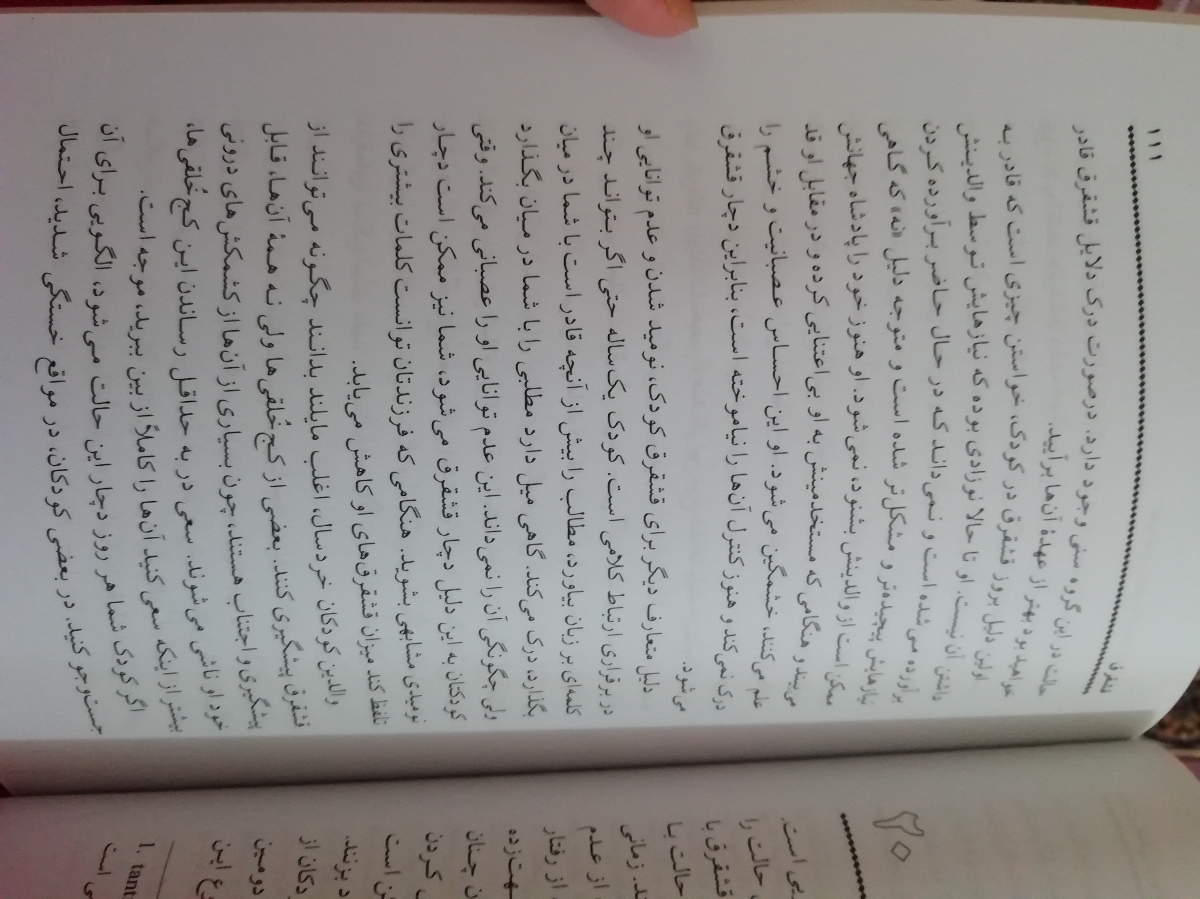 ۱۱۱
قشقرق
حالت در این گروه سنی وجود دارد. درصورت درک دلایل قشقرق قادر
خواهید بود بهتر از عهدهٔ آن‌ها برآیید.
اولین دلیل بروز قشقرق در کودک، خواستن چیزی است که قادر به
داشتن آن نیست. او تا حالا نوزادی بوده که نیازهایش توسط والدینش
برآورده می‌شده است و نمی‌داند که در حال حاضر برآورده کردن
نیازهایش پیچیده‌تر و مشکل‌تر شده است و متوجه دلیل «نه» که گاهی
ممکن است از والدینش بشنود، نمی‌شود. او هنوز خود را پادشاه جهانش
می‌بیند و هنگامی که مستخدمینش به او بی‌اعتنایی کرده و در مقابل او قد
علم می‌کنند، خشمگین می‌شود. او این احساس عصبانیت و خشم را
درک نمی‌کند و هنوز کنترل آن‌ها را نیاموخته است، بنابراین دچار قشقرق
می‌شود.
دلیل متعارف دیگر برای قشقرق کودک، نومید شدن و عدم توانایی او
در برقراری ارتباط کلامی است. کودک یک‌ساله حتی اگر بتواند چند
کلمه‌ای بر زبان بیاورد، مطالب را بیش از آنچه قادر است با شما در میان
بگذارد، درک می‌کند. گاهی میل دارد مطلبی را با شما در میان بگذارد
ولی چگونگی آن را نمی‌داند. این عدم توانایی او را عصبانی می‌کند. وقتی
کودکتان به این دلیل دچار قشقرق می‌شود، شما نیز ممکن است دچار
نومیدی مشابهی بشوید. هنگامی که فرزندتان توانست کلمات بیشتری را
تلفظ کند میزان قشقرق‌های او کاهش می‌یابد.
والدین کودکان خردسال، اغلب مایلند بدانند چگونه می‌توانند از
قشقرق پیشگیری کنند. بعضی از کج‌خُلقی‌ها ولی نه همهٔ آن‌ها، قابل
پیشگیری و اجتناب هستند، چون بسیاری از آن‌ها از کشمکش‌های درونی
خود او ناشی می‌شوند. سعی در به حداقل رساندن این کج‌خُلقی‌ها،
بیشتر از اینکه سعی کنید آن‌ها را کاملاً از بین ببرید، موجه است.
اگر کودک شما هر روز دچار این حالت می‌شود، الگویی برای آن
جست‌وجو کنید. در بعضی کودکان، در مواقع خستگی شدید، احتمال
۲۰
یی است.
حالت را
قشقرق با
حالت با
ند. زمانی
از عدم
از رفتار
هت‌زده
ن چنان
کردن
ن است
د بزنند.
دکان از
دومین
وع این
1. tant
ی است